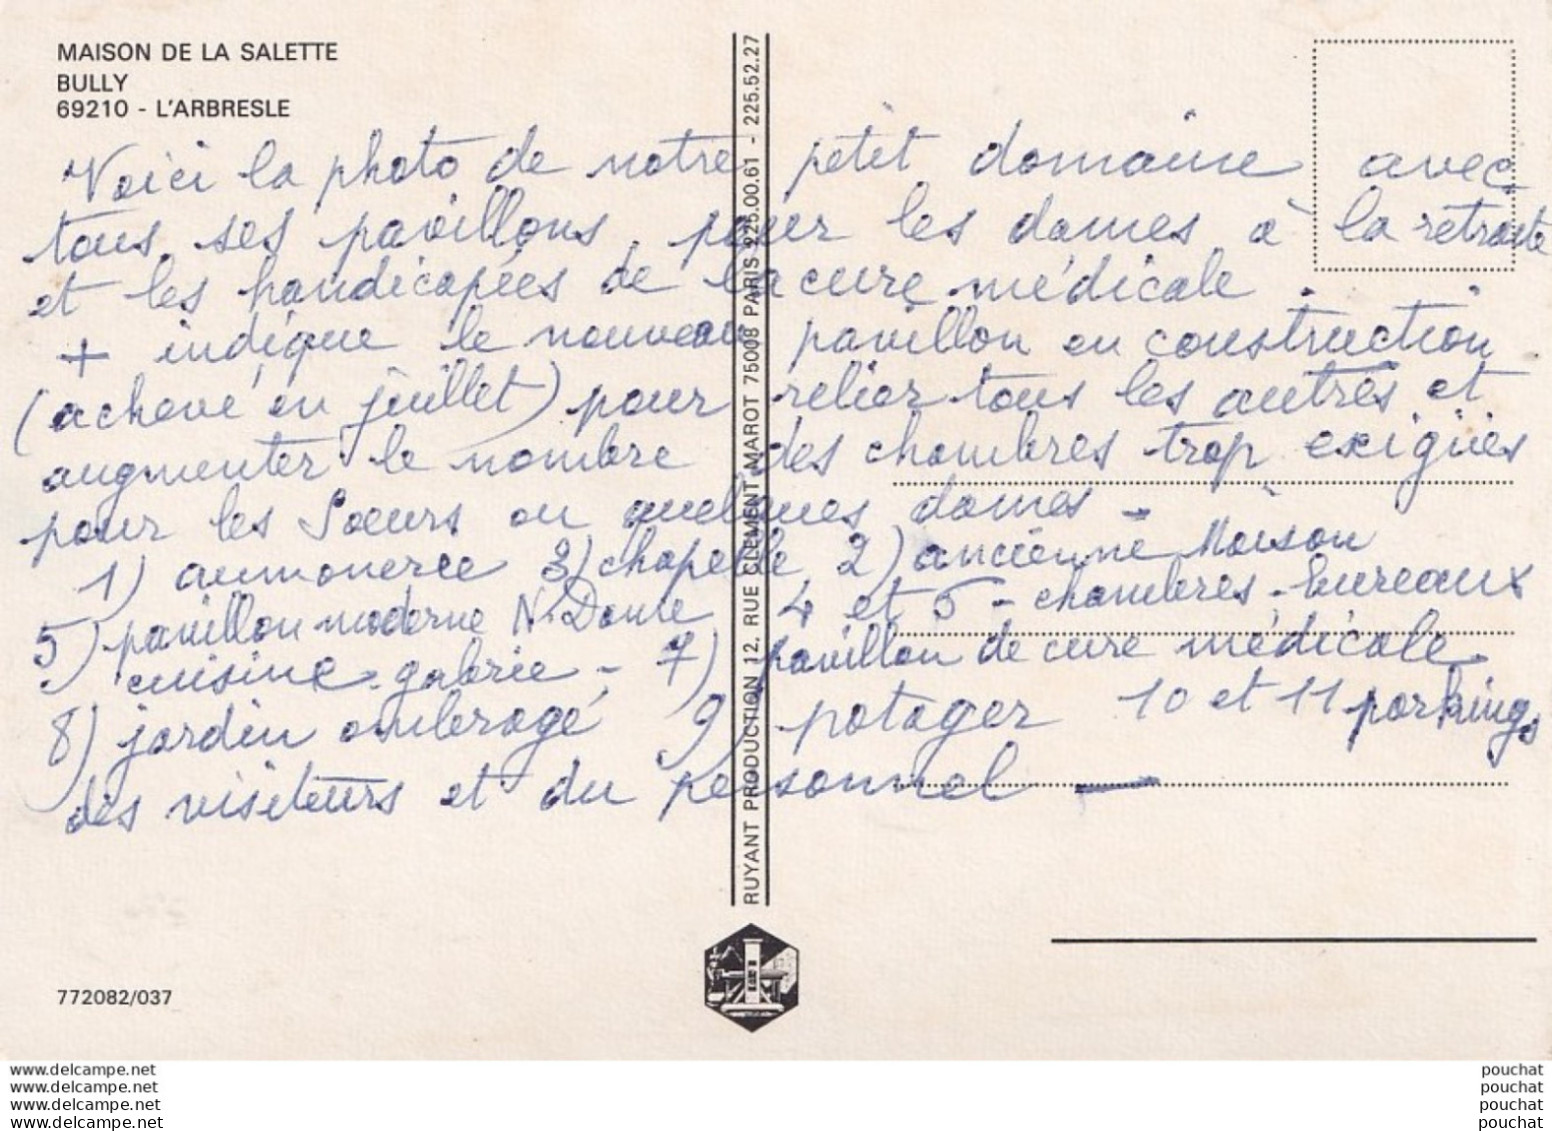 MAISON DE LA SALETTE
BULLY
69210 - L'ARBRESLE
Voici la photo de notre petit domaine avec
tous ses pavillons pour les dames à la retraite
et les handicapées de la cure médicale.
+ indique le nouveau pavillon en construction
(achevé en juillet) pour relier tous les autres et
augmenter le nombre des chambres trop exigües
pour les Soeurs ou quelques dames -
1) aumonerie 3) chapelle 2) ancienne Maison
5) pavillon moderne N. Dame 4 et 6 - chambres - bureaux
cuisine - galerie - 7) pavillon de cure médicale
8) jardin ombragé 9) potager 10 et 11 parkings
des visiteurs et du personnel -
RUYANT PRODUCTION 12, RUE CLEMENT MAROT 75008 PARIS 225.00.61 - 225.52.27
772082/037
www.delcampe.net
www.delcampe.net
www.delcampe.net
www.delcampe.net
pouchat
pouchat
pouchat
pouchat